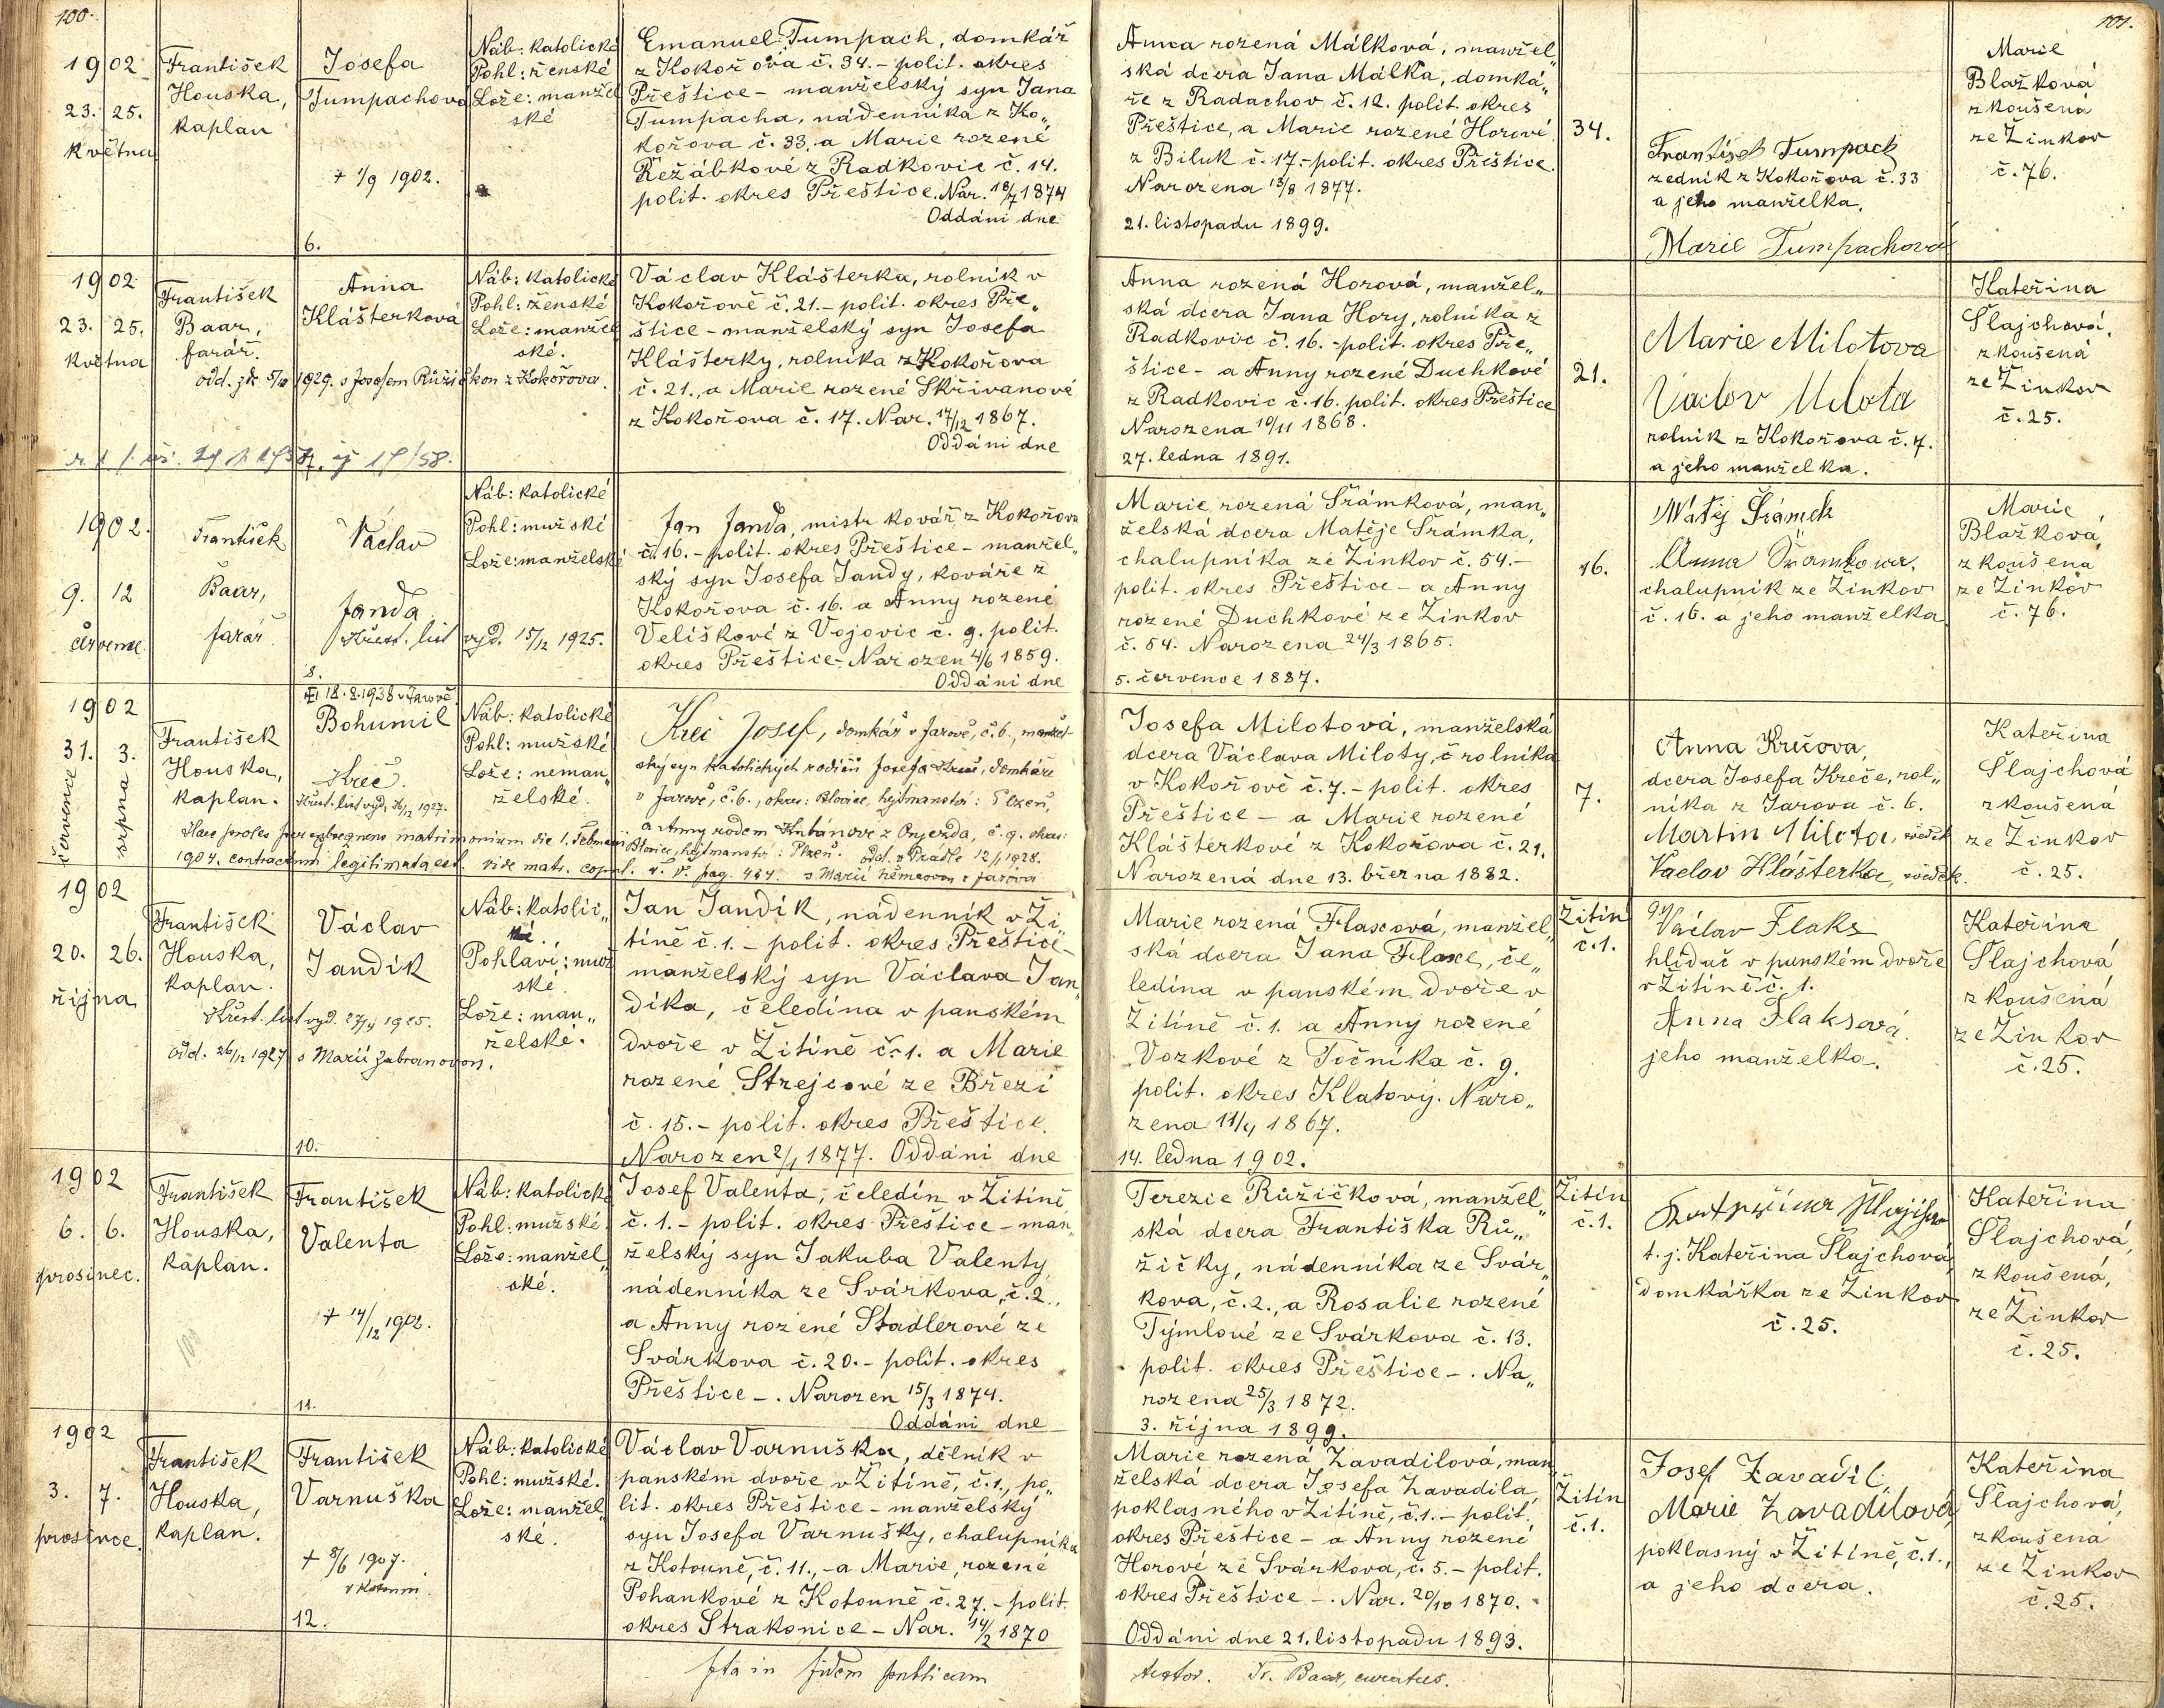 100.
101.
1902
23. 25.
května
František
Houska,
kaplan
Josefa
Tumpachova
+ 1/9 1902.
6.
Náb: katolické
Pohl: ženské
Lože: manžel
ské
Emanuel Tumpach, domkář
z Kokořova č. 34. - polit. okres
Přeštice - manželský syn Jana
Tumpacha, nádenníka z Ko„
kořova č. 33. a Marie rozené
Řežábkové z Radkovic č. 14.
polit. okres Přeštice. Nar. 18/7 1874
Oddáni dne
Anna rozená Málková, manžel„
ská dcera Jana Málka, domká„
ře z Radachov č. 12. polit. okres
Přeštice, a Marie rozené Horové
z Biluk č. 17. - polit. okres Přeštice.
Narozena 13/8 1877.
21. listopadu 1899.
34.
František Tumpach
zedník z Kokořova č. 33
a jeho manželka.
Marie Tumpachová
Marie
Blažková
zkoušená
ze Žinkov
č. 76.
1902
23. 25.
května
František
Baar,
farář.
Anna
Klášterková
odd. 5/10 1929. s Josefem Růžičkou z Kokořova.
Náb: katolické
Pohl: ženské
Lože: manžel
ské.
Václav Klášterka, rolník v
Kokořově č. 21. - polit. okres Pře„
štice - manželský syn Josefa
Klášterky, rolníka z Kokořova
č. 21., a Marie rozené Skřivanové
z Kokořova č. 17. Nar. 17/12 1867.
Oddáni dne
Anna rozená Horová, manžel„
ská dcera Jana Hory, rolníka z
Radkovic č. 16. - polit. okres Pře„
štice - a Anny rozené Duchkové
z Radkovic č. 16. polit. okres Přeštice
Narozena 10/11 1868.
27. ledna 1891.
21.
Marie Milotova
Václav Milota
rolník z Kokořova č. 7.
a jeho manželka.
Kateřina
Šlajchová,
zkoušená
ze Žinkov
č. 25.
1902.
9. 12
července
František
Baar,
farář
Václav
Janda
křest. list vyd. 15/12 1925.
8.
Náb: katolické
Pohl: mužské
Lože: manželské
Jan Janda, mistr kovář z Kokořova
č. 16. - polit. okres Přeštice - manžel„
ský syn Josefa Jandy, kováře z
Kokořova č. 16. a Anny rozené
Velíškové z Vojovic č. 9. polit.
okres Přeštice. Narozen 4/6 1859.
Oddáni dne
Marie rozená Šrámková, man„
želská dcera Matěje Šrámka,
chalupníka ze Žinkov č. 54. -
polit. okres Přeštice - a Anny
rozené Duchkové ze Žinkov
č. 54. Narozena 24/3 1865.
5. července 1887.
16.
Matěj Šrámek
Anna Šramkova,
chalupník ze Žinkov
č. 16. a jeho manželka
Marie
Blažková,
zkoušená
ze Žinkov
č. 76.
1902
31. 3.
července srpna
František
Houska,
kaplan.
18.8.1938 v Jarově
Bohumil
Kreč.
Křest. list vyd. 1927.
Haec proles per subsequens matrimonium die 1. Februarii
1904. contractum legitimata est. vide matr. copul.
Náb: katolické
Pohl: mužské
Lože: neman„
želské.
Kreč Josef, domkář v Jarově, č. 6., manžel-
ský syn katolických rodičů Josefa Kreče, domkáře
v Jarově, č. 6., okres: Blovice, hejtmanství: Plzeň,
a Anny rodem z č. 9. okres:
Blovice, hejtmanství: Plzeň. odd. v Prádle 12/1 1928.
s Marií Němcovou z Jarova
Josefa Milotová, manželská
dcera Václava Miloty, rolníka
v Kokořově č. 7. - polit. okres
Přeštice - a Marie rozené
Klášterkové z Kokořova č. 21.
Narozená dne 13. března 1882.
7.
Anna Krečova,
dcera Josefa Kreče, rol„
níka z Jarova č. 6.
Martin Milota, svědek
Vaclav Klášterka, svědek.
Kateřina
Šlajchová
zkoušená
ze Žinkov
č. 25.
1902
20. 26.
října
František
Houska,
kaplan.
Václav
Jandík
Křest. list vyd. 1925.
odd. 26/12 1927 s Marií Zabranovou.
10.
Náb: katolic„
ké.
Pohlaví: muž
ské.
Lože: man„
želské.
Jan Jandík, nádenník v Ži„
tíně č. 1. - polit. okres Přeštice -
manželský syn Václava Jan„
díka, čeledína v panském
dvoře v Žitíně č. 1. a Marie
rozené Strejcové ze Březí
č. 15. - polit. okres Přeštice.
Narozen 2/1 1877. Oddáni dne
Marie rozená Flaxová, manžel„
ská dcera Jana Flaxe, če„
ledína v panském dvoře v
Žitíně č. 1. a Anny rozené
Vozkové z Točníka č. 9.
polit. okres Klatovy. Naro„
zena 11/4 1867.
14. ledna 1902.
Žitín
č. 1.
Václav Flaks
hlídač v panském dvoře
v Žitíně č. 1.
Anna Flaksová
jeho manželka.
Kateřina
Šlajchová
zkoušená
ze Žinkov
č. 25.
1902
6. 6.
prosinec.
František
Houska,
kaplan.
František
Valenta
+ 14/12 1902.
11.
Náb: katolické
Pohl: mužské.
Lože: manžel„
ské.
Josef Valenta, čeledín v Žitíně
č. 1. - polit. okres Přeštice - man„
želský syn Jakuba Valenty
nádenníka ze Svárkova, č. 2.,
a Anny rozené Stadlerové ze
Svárkova č. 20. - polit. okres
Přeštice -. Narozen 15/3 1874.
Oddáni dne
Terezie Růžičková, manžel„
ská dcera Františka Rů„
žičky, nádenníka ze Svár„
kova, č. 2., a Rosalie rozené
Týmlové ze Svárkova č. 13.
polit. okres Přeštice -. Na„
rozena 25/3 1872.
3. října 1899.
Žitín
č. 1.
t. j. Kateřina Šlajchová,
domkářka ze Žinkov
č. 25.
Kateřina
Šlajchová,
zkoušená,
ze Žinkov
č. 25.
1902
3. 7.
prosince.
František
Houska,
kaplan.
František
Varnuška
+ 8/6 1907.
v Kotouni.
12.
Náb: katolické
Pohl: mužské.
Lože: manžel„
ské.
Václav Varnuška, dělník v
panském dvoře v Žitíně, č. 1., po„
lit. okres Přeštice - manželský
syn Josefa Varnušky, chalupníka
z Kotouně, č. 11., - a Marie, rozené
Pohankové z Kotouně č. 27. - polit.
okres Strakonice - Nar. 14/2 1870
Marie rozená Zavadilová, man„
želská dcera Josefa Zavadila,
poklasného v Žitíně, č. 1. - polit.
okres Přeštice - a Anny rozené
Horové ze Svárkova, č. 5. - polit.
okres Přeštice -. Nar. 20/10 1870.
Oddáni dne 21. listopadu 1893.
Žitín
č. 1.
Josef Zavadil
Marie Zavadilová
poklasný v Žitíně, č. 1.,
a jeho dcera.
Kateřina
Šlajchová,
zkoušená
ze Žinkov
č. 25.
Ita in fidem publicam
testor. Fr. Baar, curatus.